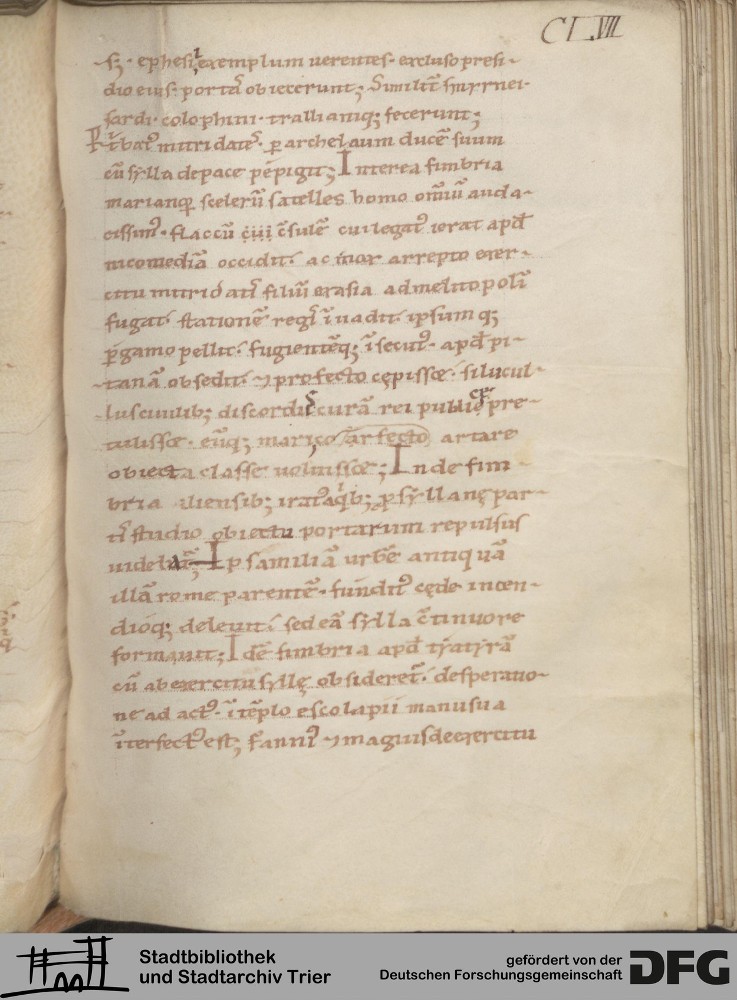 CLVII
s; ephesi exemplum uerentes· excluso presi-
dio eius· portā obiecerunt; Similit̄ smyrnei·
sardi· colophini· trallianiq; fecerunt;
mitridateˢ· ꝑ archelaum ducē suum
cū sylla de pace pepigit; Interea fimbria
scelerū satelles homo om̄iū auda-
cissim᷒· flaccū c̄sulē cui legat᷒ ierat apđ
nicomediā occidit· ac mox arrepto exer-
citu mitridatis filiū exasia ad melitopolī
fugat· stationē regī īuadit· ipsumq;
ꝑgamo pellit· fugientēq; īsecut᷒· apđ pi-
tanā obsedit· ⁊ profecto cępisset· si lucul-
lus ciuilib; discordiis curā rei publicę pre-
tulisset· eūq; artare
obiecta classe uoluisset; Inde fim-
bria iliensib; iratus syllanę par-
tis studio obiectu portarum repulsus
Ipsam iliā urbē antiquā
illā rome parentē· fundit᷒ cęde incen-
dioq; deleuit· sed eā sylla c̄tinuo re
formauit; Idē fimbria apđ tyatyrā
cū ab exercitu syllę obsideret᷑· desperatio-
ne ad act᷒· ī tēplo escolapii manu sua
īterfect᷒ est; fanni᷒ ⁊ magius de exercitu
Stadtbibliothek
und Stadtarchiv Trier
gefördert von der
Deutschen Forschungsgemeinschaft
DFG